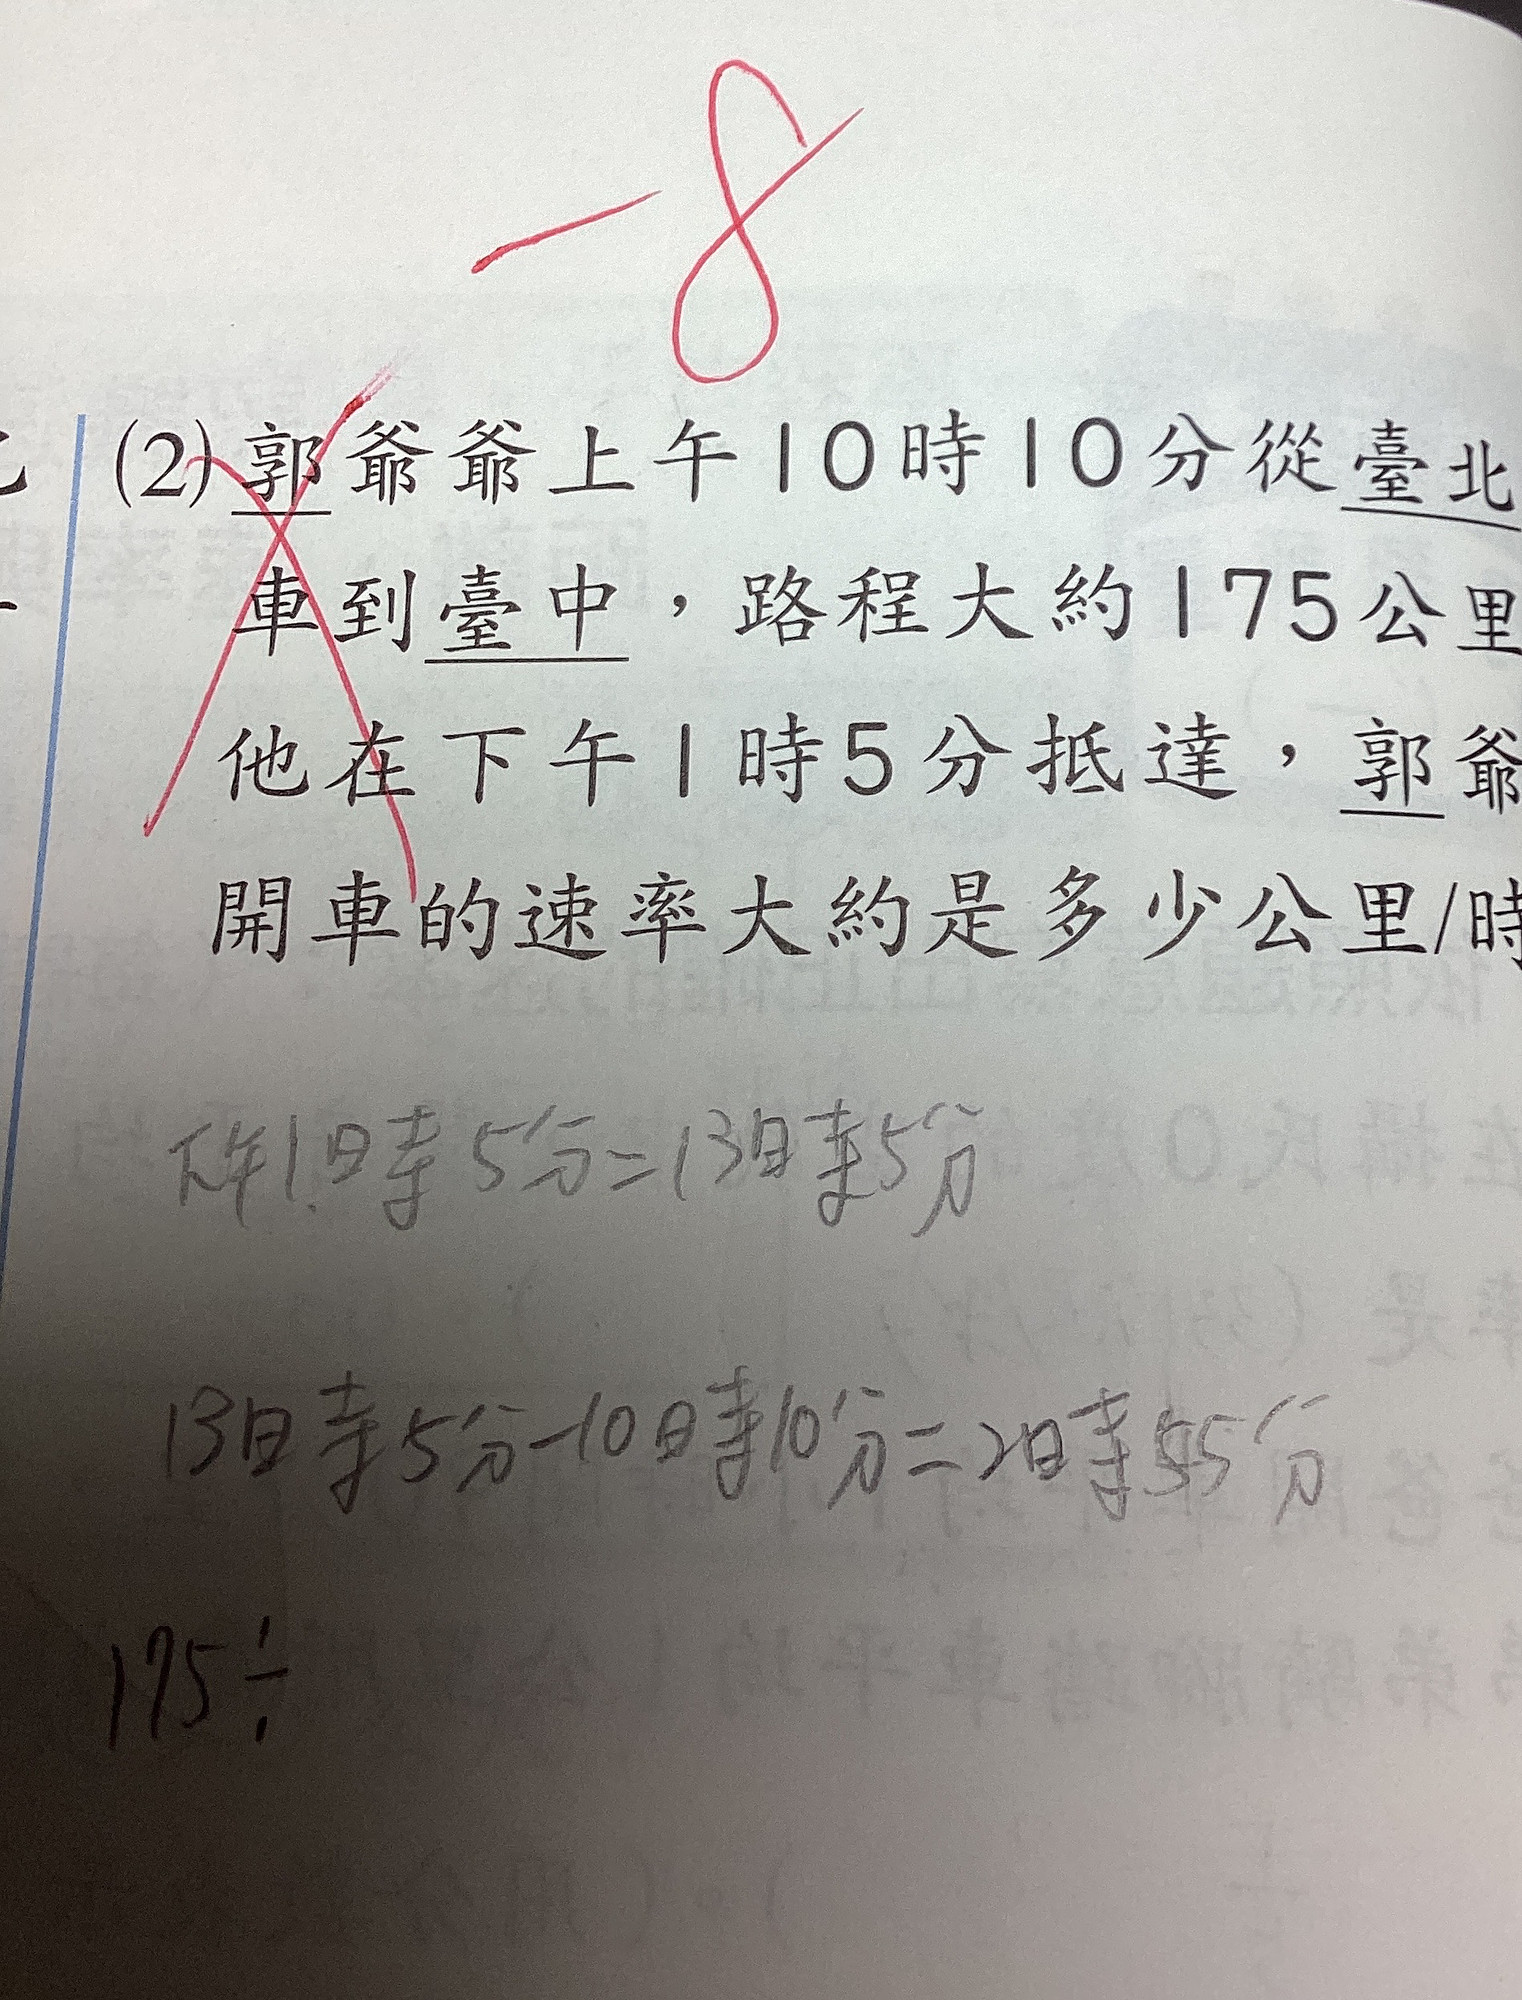 -8
(2)郭爺爺上午10時10分從臺北
車到臺中,路程大約175公里
他在下午1時5分抵達,郭爺
開車的速率大約是多少公里/時
下午1時5分=13時5分
13時5分-10時10分=2時55分
175÷